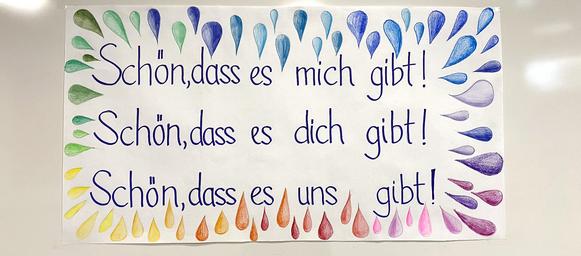 Schön, dass es mich gibt!
Schön, dass es dich gibt!
Schön, dass es uns gibt!